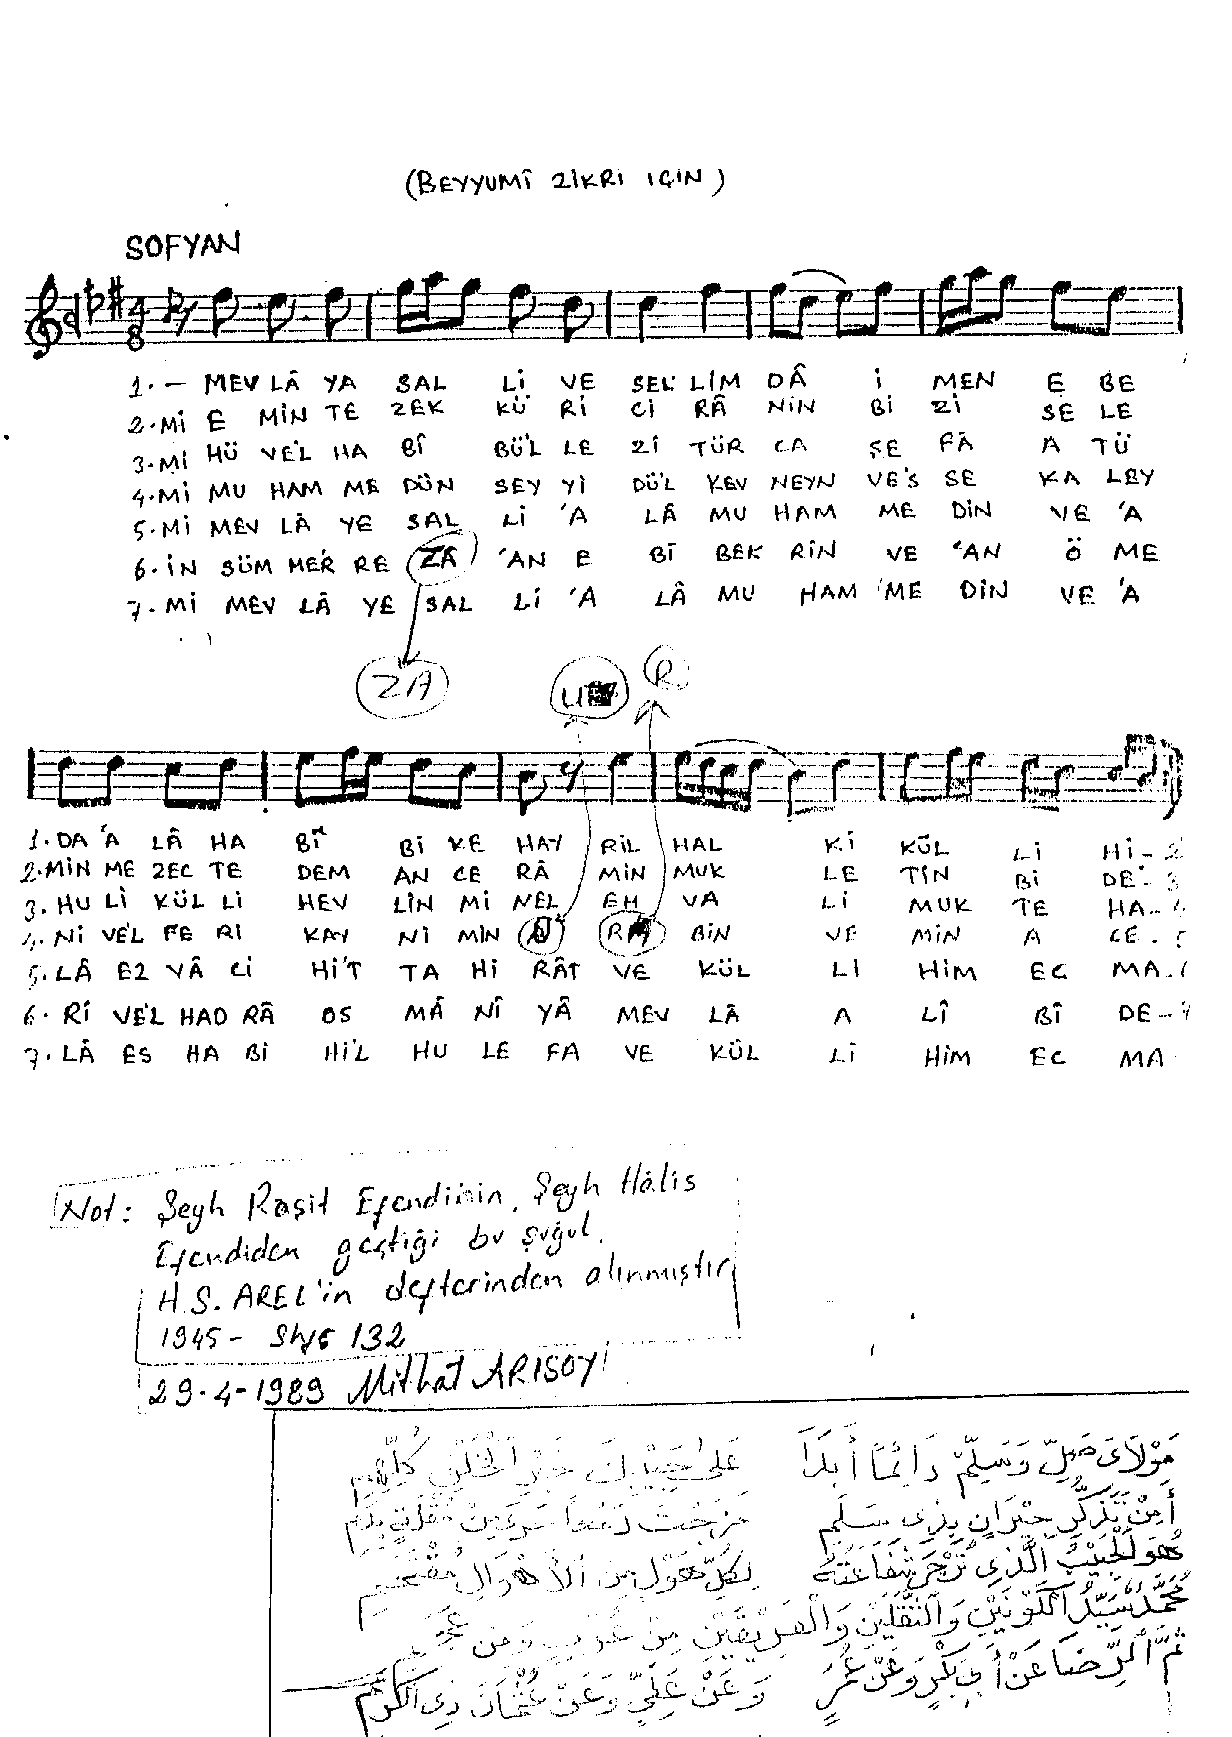 (BEYYUMÎ ZİKRİ IÇIN)
SOFYAN
4
8
1.- MEV LÂ YA SAL Lİ VE SEL LİM DÂ İ MEN E BE
2.Mİ E MİN TE ZEK KÜ Rİ Cİ RÂ NİN Bİ Zİ SE LE
3.Mİ HÜ VE'L HA BÎ BÜ'L LE Zİ TÜR CA ŞE FÂ A TÜ
4.Mİ MU HAM ME DÜN SEY Yİ DÜ'L KEV NEYN VE'S SE KA LEY
5.Mİ MEV LÂ YE SAL Lİ 'A LÂ MU HAM ME DİN VE 'A
6.İN SÜM ME'R RE ZA 'AN E BÎ BEK RİN VE 'AN Ö ME
7.Mİ MEV LÂ YE SAL Lİ 'A LÂ MU HAM ME DİN VE 'A
ZA R
1.DA 'A LÂ HA BÎ Bİ KE HAY RİL HAL Kİ KÜL Lİ Hİ- 2
2.MİN ME ZEC TE DEM AN CE RÂ MİN MUK LE TİN Bİ DE- 3
3.HU Lİ KÜL Lİ HEV LİN Mİ NEL EH VA Lİ MUK TE HA- 4
4.Nİ VE'L FE Rİ KAY Nİ MİN BİN VE MİN A CE- 5
5.LÂ EZ VÂ Cİ Hİ'T TA Hİ RÂT VE KÜL Lİ HİM EC MA-
6.Rİ VE'L HAD RÂ OS MÂ NÎ YÂ MEV LÂ A LÎ BÎ DE-
7.LÂ ES HA Bİ Hİ'L HU LE FA VE KÜL Lİ HİM EC MA
Not: Şeyh Raşit Efendinin, Şeyh Hâlis
Efendiden geçtiği bu şuğul,
H.S. AREL'in defterinden alınmıştır
1945- 132
29-4-1989 Mithat ARISOY
مَوْلَايَ صَلِّ وَسَلِّمْ دَائِمًا أَبَدًا عَلَى حَبِيبِكَ خَيْرِ الْخَلْقِ كُلِّهِمِ
أَمِنْ تَذَكُّرِ جِيرَانٍ بِذِي سَلَمِ مَزَجْتَ دَمْعًا جَرَى مِنْ مُقْلَةٍ بِدَمِ
هُوَ الْحَبِيبُ الَّذِي تُرْجَى شَفَاعَتُهُ لِكُلِّ هَوْلٍ مِنَ الْأَهْوَالِ مُقْتَحَمِ
مُحَمَّدٌ سَيِّدُ الْكَوْنَيْنِ وَالثَّقَلَيْنِ وَالْفَرِيقَيْنِ مِنْ عُرْبٍ وَمِنْ عَجَمِ
ثُمَّ الرِّضَا عَنْ أَبِي بَكْرٍ وَعَنْ عُمَرٍ وَعَنْ عَلِيٍّ وَعَنْ عُثْمَانَ ذِي الْكَرَمِ